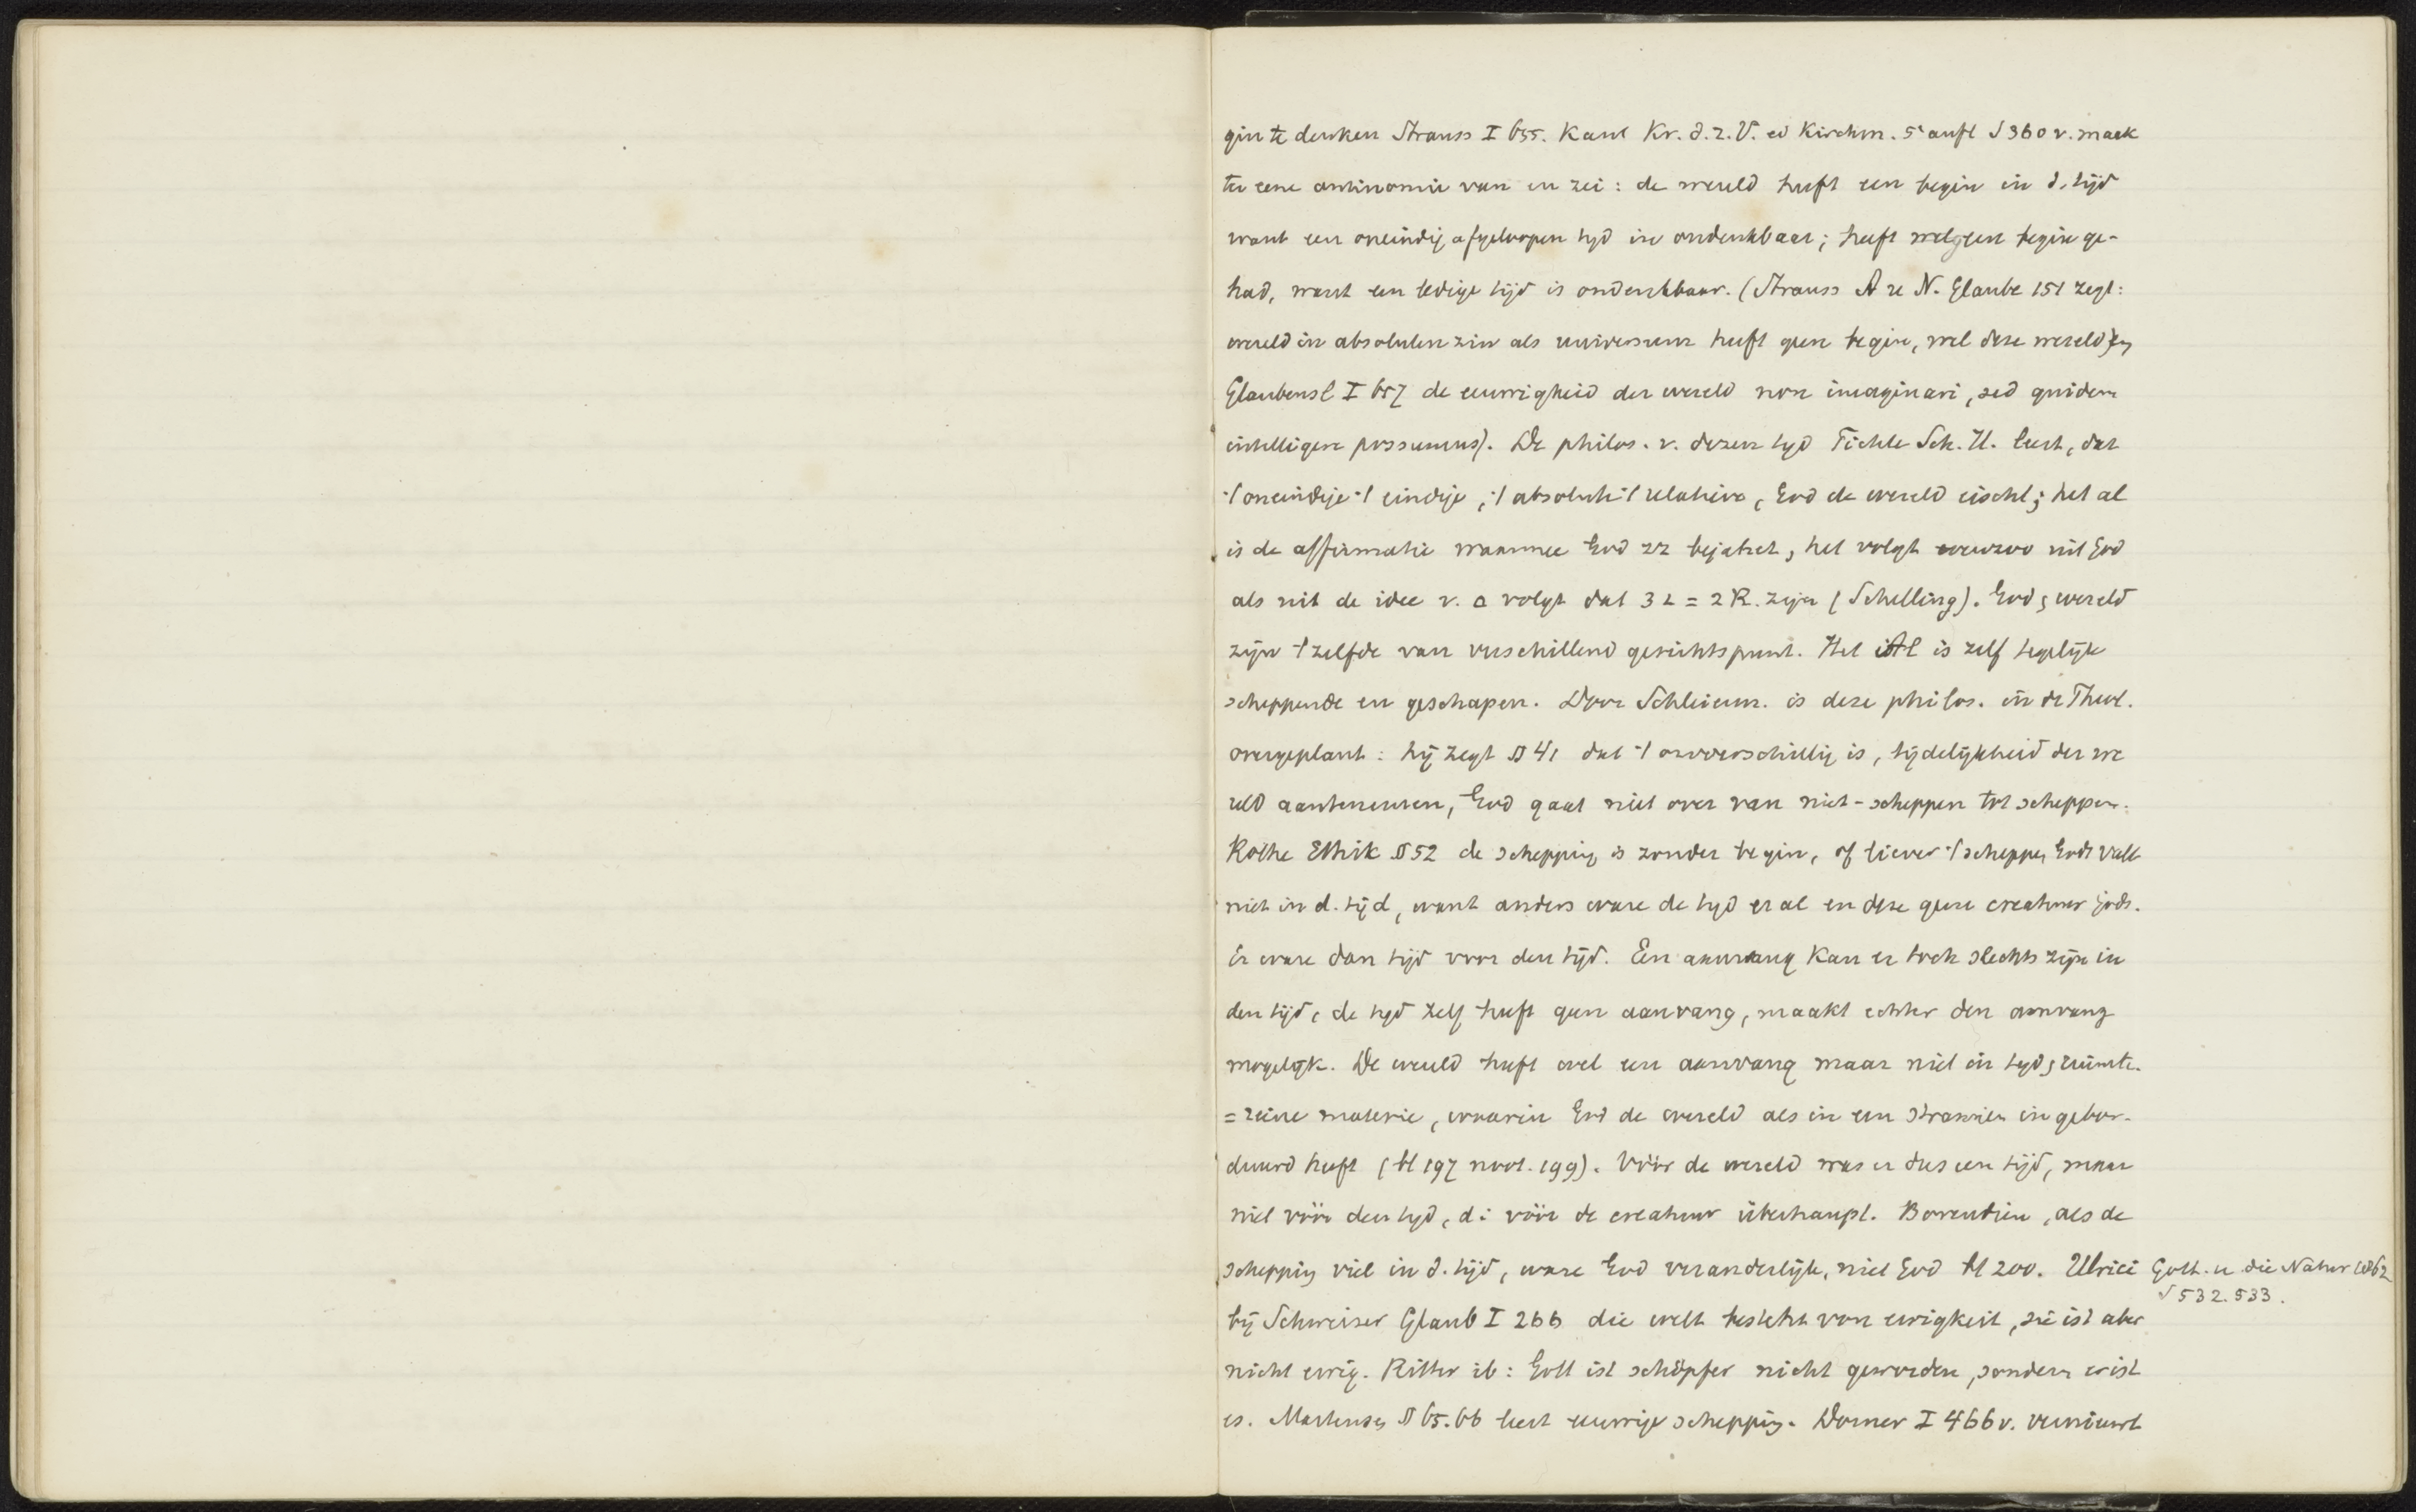 gin te denken Strauss I 655. Kant Kr. d. r. V. ed Kirchm. 5e aufl S 360 v. maak
ter eene antinomie van en zei: de wereld heeft een begin in d. tijd
want een oneindig afgeloopen tijd is ondenkbaar; heeft wel geen begin ge-
had, want een ledige tijd is ondenkbaar. (Strauss A u N. Glaube 151 zegt:
wereld in absoluten zin als universum heeft geen begin, wel deze wereld) en
Glaubensl I 657 de eeuwigheid der wereld non imaginari, sed quidem
intelligere possumus). De philos. v. dezen tijd Fichte Sch. H. leert, dat
't oneindige 't eindige, 't absolute 't relatieve, God de wereld eischt; het al
is de affirmatie waarmee God zz bejahet, het volgt evenzoo uit God
als uit de idee v. △ volgt dat 3 ∠ = 2 R. zijn (Schelling). God, wereld
zijn 't zelfde van verschillend gezichtspunt. Het Al is zelf tegelijk
scheppende en geschapen. Door Schleierm. is deze philos. in de Theol.
overgeplant: hij zegt § 41 dat 't onverschillig is, tijdelijkheid der we
reld aantenemen, God gaat niet over van niet-scheppen tot scheppen.
Rothe Ethik § 52 de schepping is zonder begin, of liever 't scheppen Gods valt
niet in d. tijd, want anders ware de tijd er al en deze geen creatuur Gods.
Er ware dan tijd voor den tijd. Een aanvang kan er toch slechts zijn in
den tijd, de tijd zelf heeft geen aanvang, maakt echter den aanvang
mogelijk. De wereld heeft wel een aanvang maar niet in tijd, ruimte.
= reine materie, waarin God de wereld als in een stramien ingebor-
duurd heeft (bl 197 noot. 199). Vóór de wereld was er dus een tijd, maar
niet vóór den tijd, d.i vóór de creatuur überhaupt. Bovendien, als de
schepping viel in d. tijd, ware God veranderlijk, niet God bl 200. Ulrici Gott. u die Natur 1862
S 532. 533.
bij Schweizer Glaub I 266 die welt besteht von ewigkeit, sie ist aber
nicht ewig. Ritter ib: Gott ist schöpfer nicht geworden, sondern er ist
es. Martensen § 65. 66 leert eeuwige schepping. Dorner I 466 v. vernieuwt